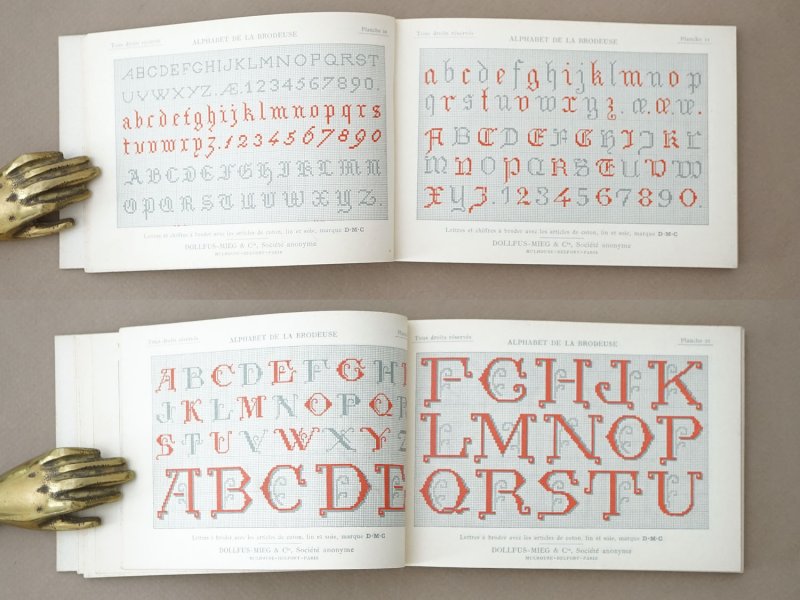 Tous droits réservés ALPHABET DE LA BRODEUSE Planche 10
ABCDEFGHIJKLMNOPQRST
UVWXYZ. Æ. 1234567890.
abcdefghijklmnopqrs
tuvwxyz. 1234567890
ABCDEFGHIJKLMN
OPQRSTUVWXYZ.
Lettres et chiffres à broder avec les articles de coton, lin et soie, marque D·M·C
DOLLFUS-MIEG & Cie, Société anonyme
MULHOUSE-BELFORT-PARIS
Tous droits réservés ALPHABET DE LA BRODEUSE Planche 11
abcdefghijklmnop
qrstuvwxyz. æ. œ.
ABCDEFGHIJKL
MNOPQRSTUVW
XYZ. 1234567890.
Lettres et chiffres à broder avec les articles de coton, lin et soie, marque D·M·C
DOLLFUS-MIEG & Cie, Société anonyme
MULHOUSE-BELFORT-PARIS
Tous droits réservés ALPHABET DE LA BRODEUSE
ABCDEFGH
JKLMNOPQ
STUVWXY
ABCDE
Lettres à broder avec les articles de coton, lin et soie, marque D·M·C
DOLLFUS-MIEG & Cie, Société anonyme
MULHOUSE-BELFORT-PARIS
Tous droits réservés ALPHABET DE LA BRODEUSE Planche
FGHJK
LMNOP
QRSTU
Lettres à broder avec les articles de coton, lin et soie, marque D·M·C
DOLLFUS-MIEG & Cie, Société anonyme
MULHOUSE-BELFORT-PARIS